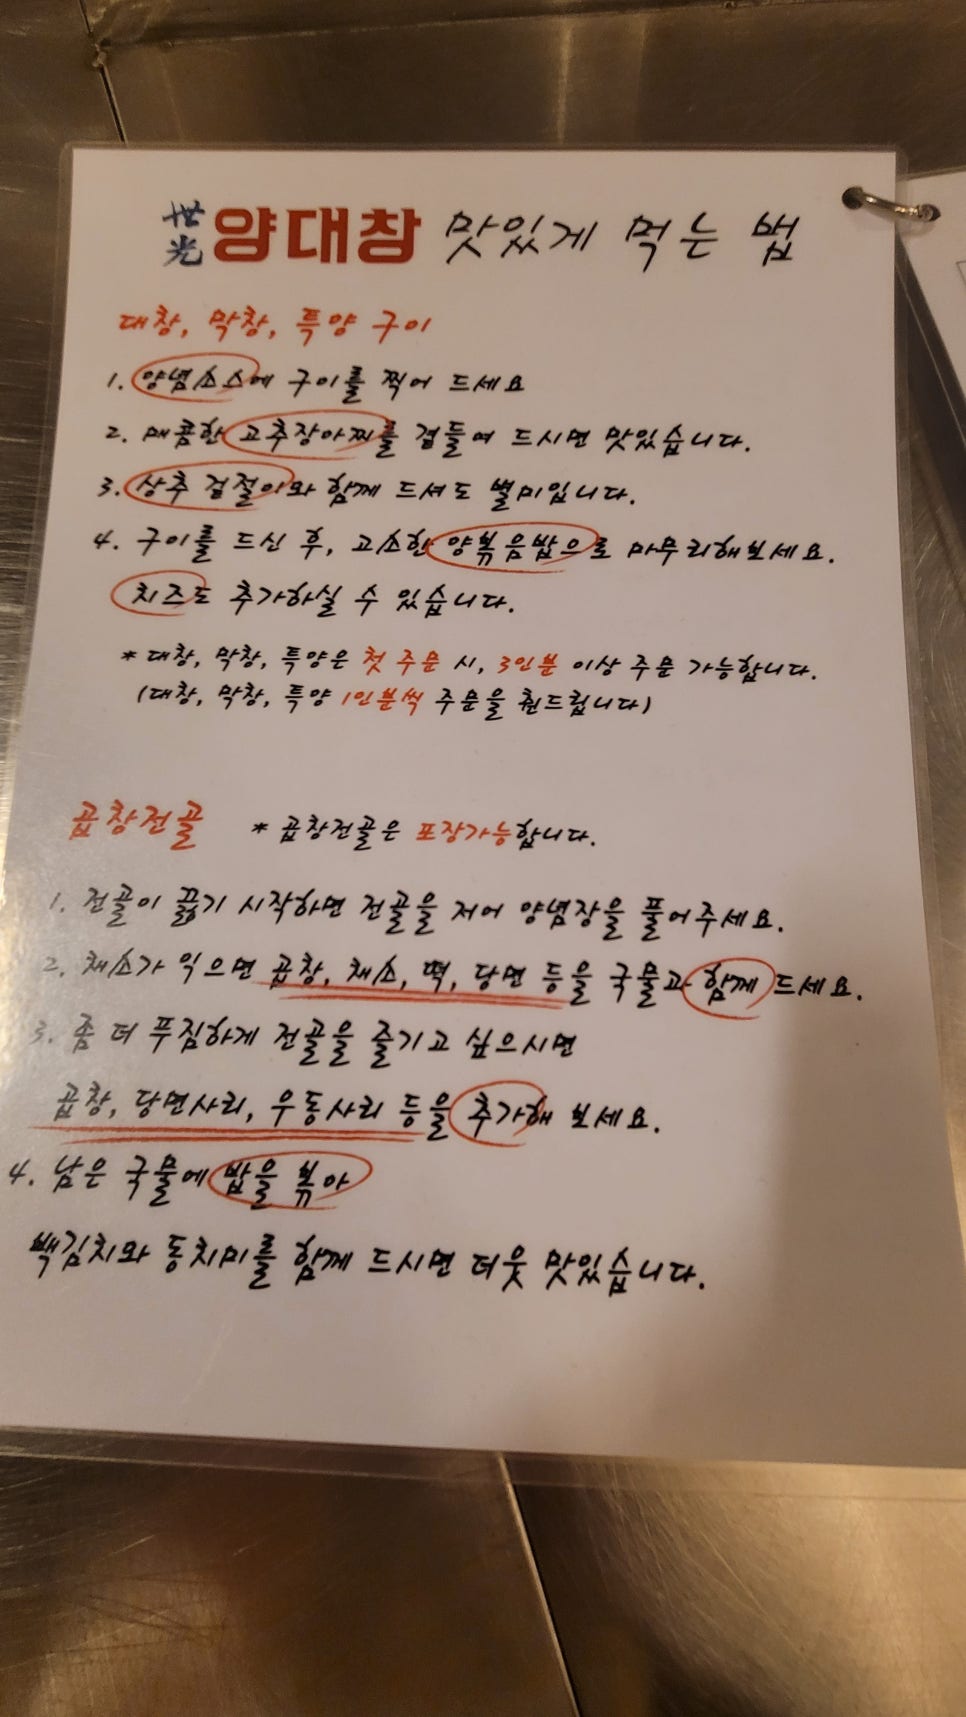 世光 양대창 맛있게 먹는 법
대창, 막창, 특양 구이
1. 양념소스에 구이를 찍어 드세요
2. 매콤한 고추장아찌를 곁들여 드시면 맛있습니다.
3. 상추 겉절이와 함께 드셔도 별미입니다.
4. 구이를 드신 후, 고소한 양볶음밥으로 마무리해보세요.
치즈도 추가하실 수 있습니다.
* 대창, 막창, 특양은 첫 주문 시, 3인분 이상 주문 가능합니다.
(대창, 막창, 특양 1인분씩 주문을 권드립니다)
곱창전골 * 곱창전골은 포장가능합니다.
1. 전골이 끓기 시작하면 전골을 저어 양념장을 풀어주세요.
2. 채소가 익으면 곱창, 채소, 떡, 당면 등을 국물과 함께 드세요.
3. 좀 더 푸짐하게 전골을 즐기고 싶으시면
곱창, 당면사리, 우동사리 등을 추가해 보세요.
4. 남은 국물에 밥을 볶아
백김치와 동치미를 함께 드시면 더욱 맛있습니다.